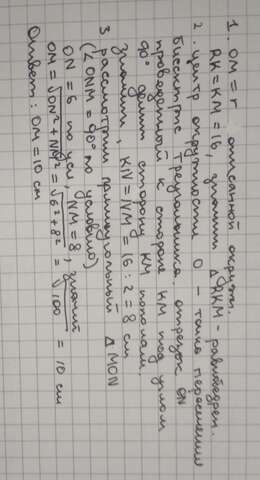 1. OM = r описанной окружн.
RK = KM = 16, значит △RKM - равнобедрен.
2. центр окружности O - точка пересечения
биссектрис треугольника. отрезок ON
проведенный к стороне KM под углом
90° делит сторону KM пополам.
значит, KN = NM = 16 : 2 = 8 см
3 рассмотрим прямоугольный △ MON
(∠ONM = 90° по условию)
ON = 6 по усл, NM = 8, значит
OM = √ON² + NM² = √6² + 8² = √100 = 10 см
Ответ: OM = 10 см